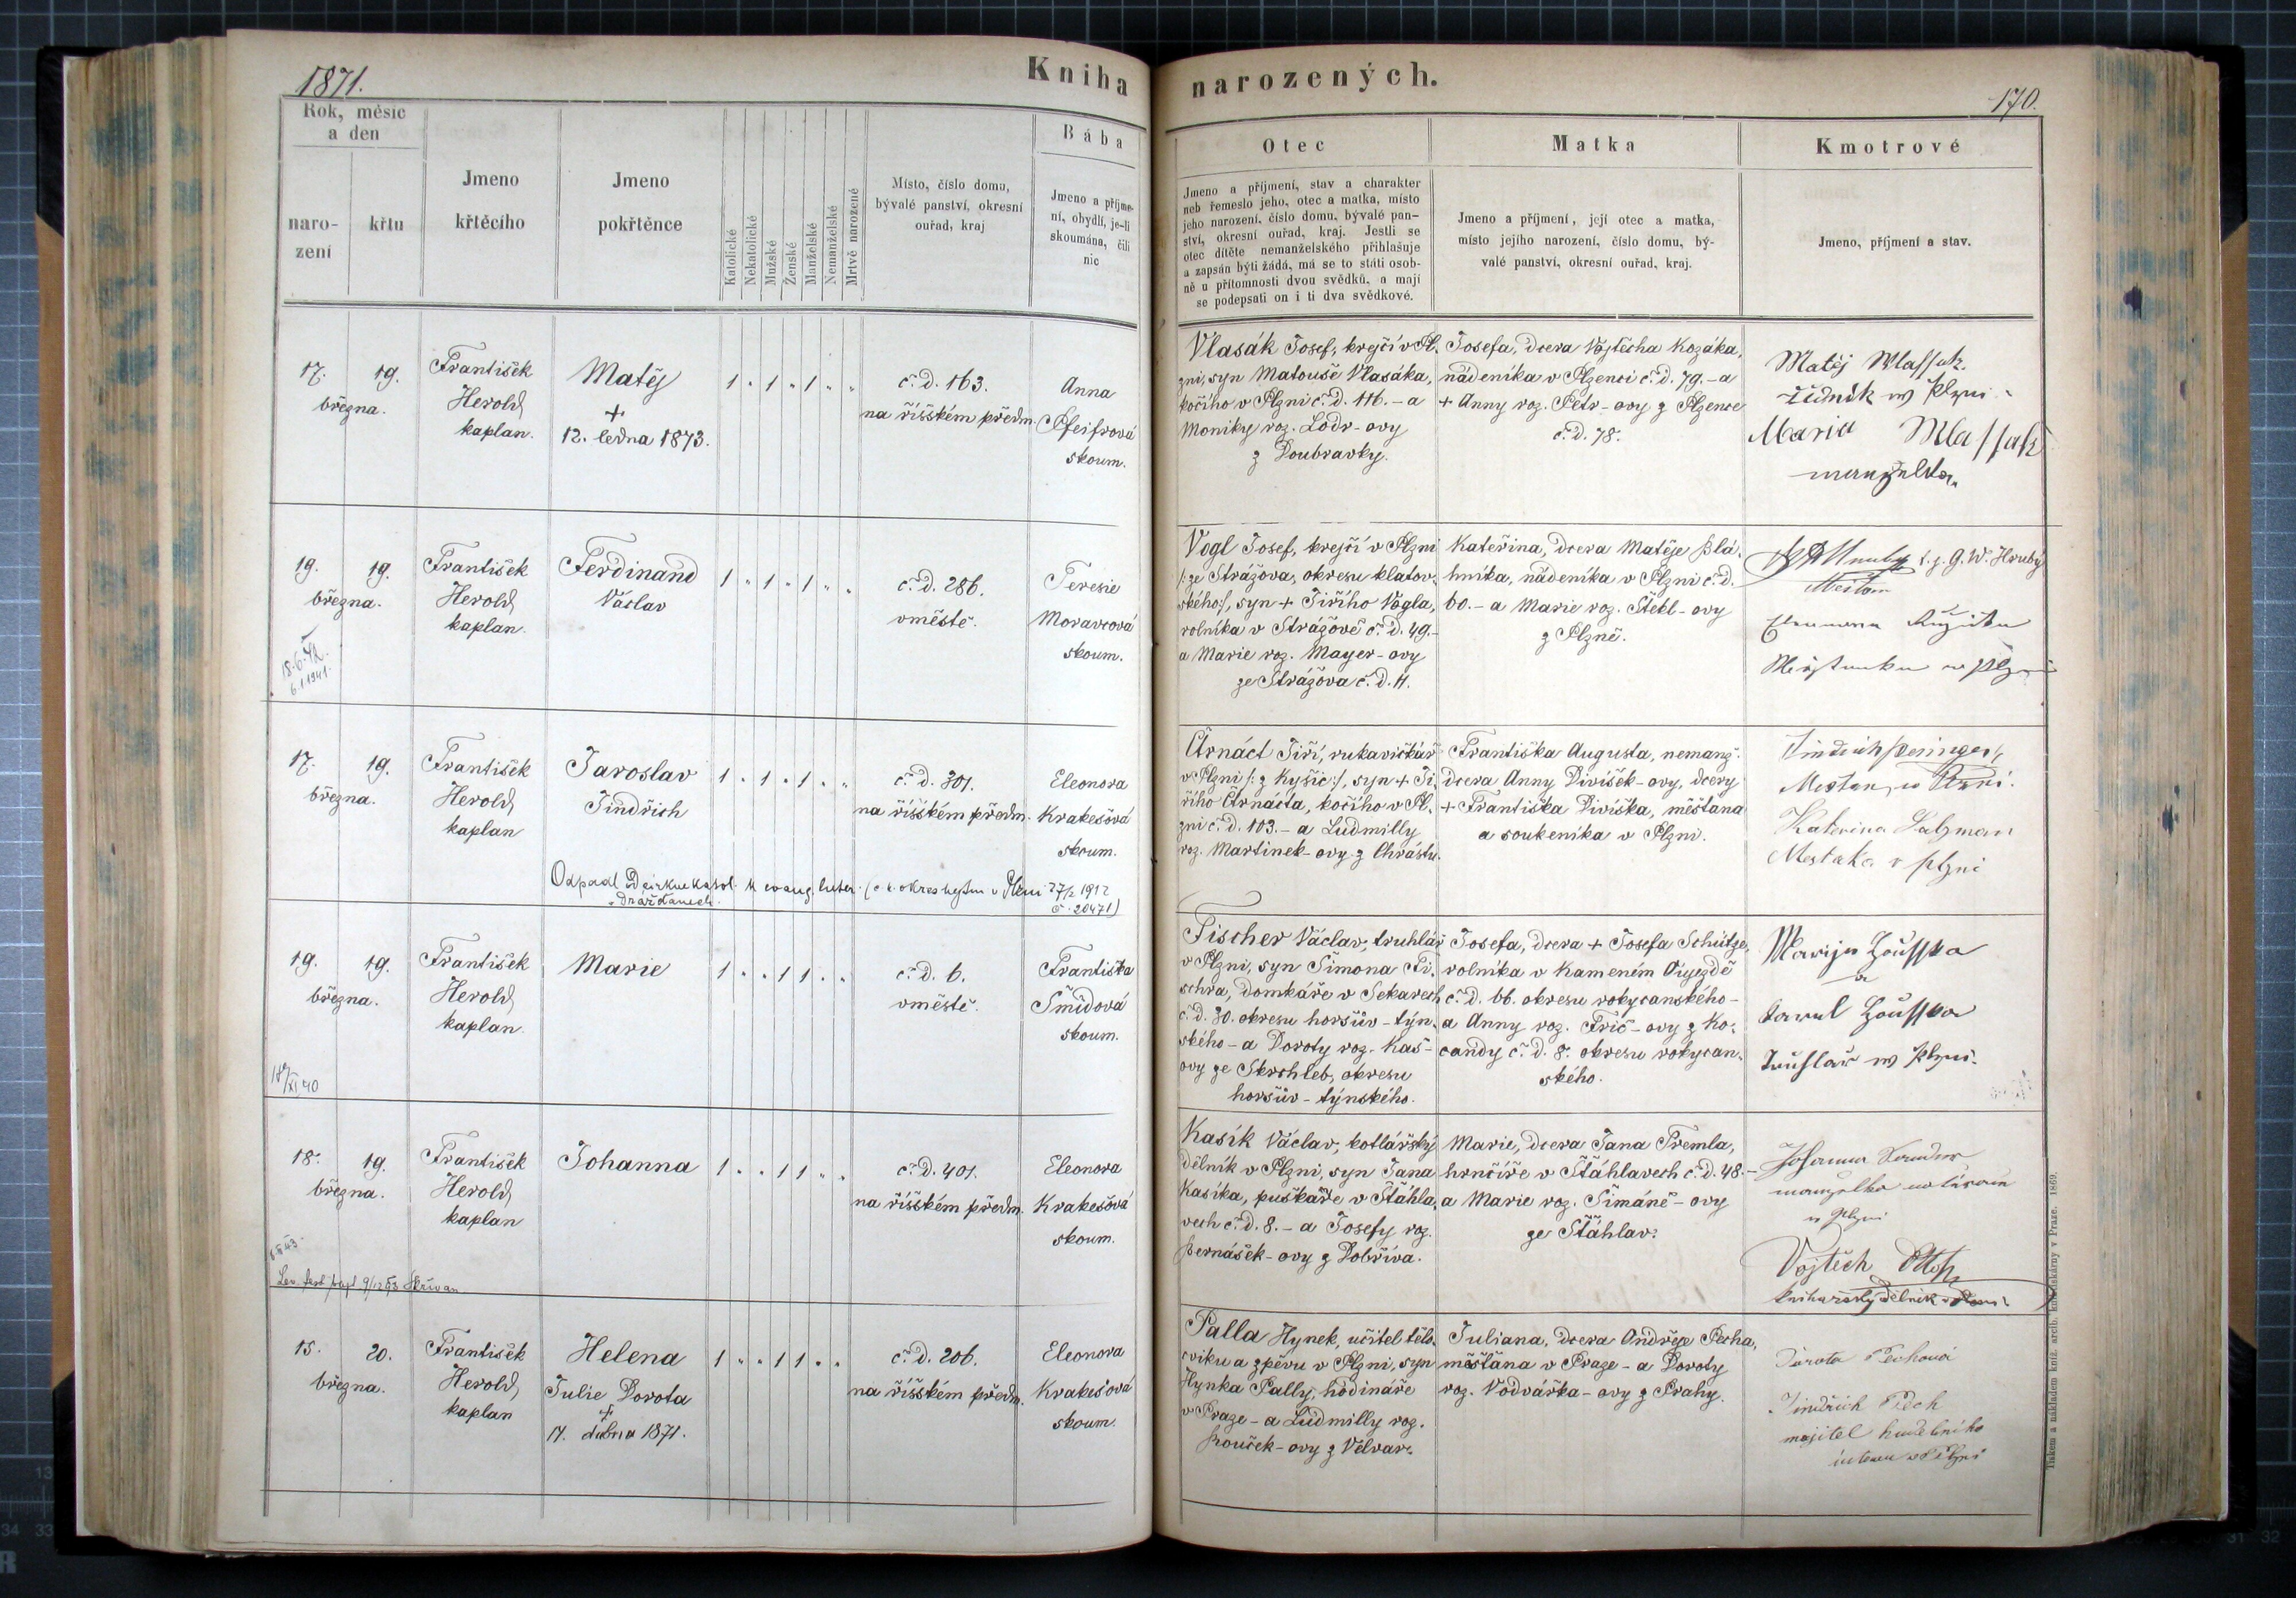 1871.
Kniha narozených.
170.
Rok, měsíc
a den
naro-
zení
křtu
Jmeno
křtěcího
Jmeno
pokřtěnce
Katolické
Nekatolické
Mužské
Ženské
Manželské
Nemanželské
Mrtvě narozené
Místo, číslo domu,
bývalé panství, okresní
ouřad, kraj
Bába
Jmeno a příjme-
ní, obydlí, je-li
skoumána, čili
nic
Otec
Jmeno a příjmení, stav a charakter
neb řemeslo jeho, otec a matka, místo
jeho narození, číslo domu, bývalé pan-
ství, okresní ouřad, kraj. Jestli se
otec dítěte nemanželského přihlašuje
a zapsán býti žádá, má se to státi osob-
ně u přítomnosti dvou svědků, a mají
se podepsati on i ti dva svědkové.
Matka
Jmeno a příjmení, její otec a matka,
místo jejího narození, číslo domu, bý-
valé panství, okresní ouřad, kraj.
Kmotrové
Jmeno, příjmení a stav.
17. 19.
března.
František
Herold,
kaplan.
Matěj
+
12. ledna 1873.
1 " 1 " 1 " "
č. d. 163.
na říšském předm.
Anna
Pfeifrová
skoum.
Vlasák Josef, krejčí v Pl-
zni, syn Matouše Vlasáka,
kočího v Plzni č. d. 116. - a
Moniky roz. Lodr-ovy
z Doubravky.
Josefa, dcera Vojtěcha Kozáka,
nádeníka v Plzenci č. d. 79. - a
+ Anny roz. Petr-ovy z Plzence
č. d. 78.
Matěj Wlassak
w Plzni
Maria Wlassak
manželka
19. 19.
března.
18.6.42.
6.1.1941.
František
Herold,
kaplan.
Ferdinand
Václav
1 " 1 " 1 " "
č. d. 286.
v městě.
Teresie
Moravcová
skoum.
Vogl Josef, krejčí v Plzni
/: ze Strážova, okresu klatov-
ského :/, syn + Jiřího Vogla,
rolníka v Strážově č. d. 49. -
a Marie roz. Mayer-ovy
ze Strážova č. d. 11.
Kateřina, dcera Matěje Blá-
hníka, nádeníka v Plzni č. d.
60. - a Marie roz. Štekl-ovy
z Plzně.
t. j. G. W. Hrubý
17. 19.
března.
František
Herold,
kaplan
Jaroslav
Jindřich
1 " 1 " 1 " "
č. d. 301.
na říšském předm.
Eleonora
Krakešová
skoum.
Odpadl od církve katol. k evang. luter. (c. k. okres. hejtm. v Plzni 27/2 1912
v Drážďanech. č. 20471)
Čtrnáct Jiří, rukavičkář
v Plzni /: z Kyšic :/, syn + Ji-
řího Čtrnácta, kočího v Pl-
zni č. d. 103. - a Ludmilly
roz. Martinek-ovy z Chrástu.
Františka Augusta, nemanž.
dcera Anny Divíšek-ovy, dcery
+ Františka Divíška, měšťana
a soukeníka v Plzni.
Mestan w Plzni.
Katerina Salzman
Mestaka v plzni
19. 19.
března.
František
Herold,
kaplan.
Marie
1 " " 1 1 " "
č. d. 6.
v městě.
Františka
Šmídová
skoum.
Fischer Václav, truhlář
v Plzni, syn Šimona Fi-
schra, domkáře v Sekarech
č. d. 30. okresu horšův-týn-
ského - a Doroty roz. Kas-
ovy ze Skrchleb, okresu
horšův-týnského.
Josefa, dcera + Josefa Schütze,
rolníka v Kameném Oujezdě
č. d. 66. okresu rokycanského -
a Anny roz. Frič-ovy z Ko-
candy č. d. 8. okresu rokycan-
ského.
Marija Zousska
a
Karel Zousska
Truhlař w Plzni.
18. 19.
března.
František
Herold,
kaplan
Johanna
1 " " 1 1 " "
č. d. 401.
na říšském předm.
Eleonora
Krakešová
skoum.
Kasík Václav, kotlářský
dělník v Plzni, syn Jana
Kasíka, puškáře v Šťáhla-
vech č. d. 8. - a Josefy roz.
Bernášek-ovy z Dobříva.
Marie, dcera Jana Tremla,
hrnčíře v Šťáhlavech č. d. 48. -
a Marie roz. Šimáně-ovy
ze Šťáhlav.
Johanna
manželka
w Plzni
Vojtěch Ott
knihařský dělník v Plzni
15. 20.
března.
František
Herold,
kaplan
Helena
Julie Dorota
+
17. dubna 1871.
1 " " 1 1 " "
č. d. 206.
na říšském předm.
Eleonora
Krakešová
skoum.
Palla Hynek, učitel tělo-
cviku a zpěvu v Plzni, syn
Hynka Pally, hodináře
v Praze - a Ludmilly roz.
Brouček-ovy z Velvar.
Juliana, dcera Ondřeje Pecha,
měšťana v Praze - a Doroty
roz. Vodvářka-ovy z Prahy.
Dorota Pechová
Jindřich Pech
majitel hudebního
ústavu v Plzni
Tiskem a nákladem kníž. arcib. knihtiskárny v Praze. 1869.